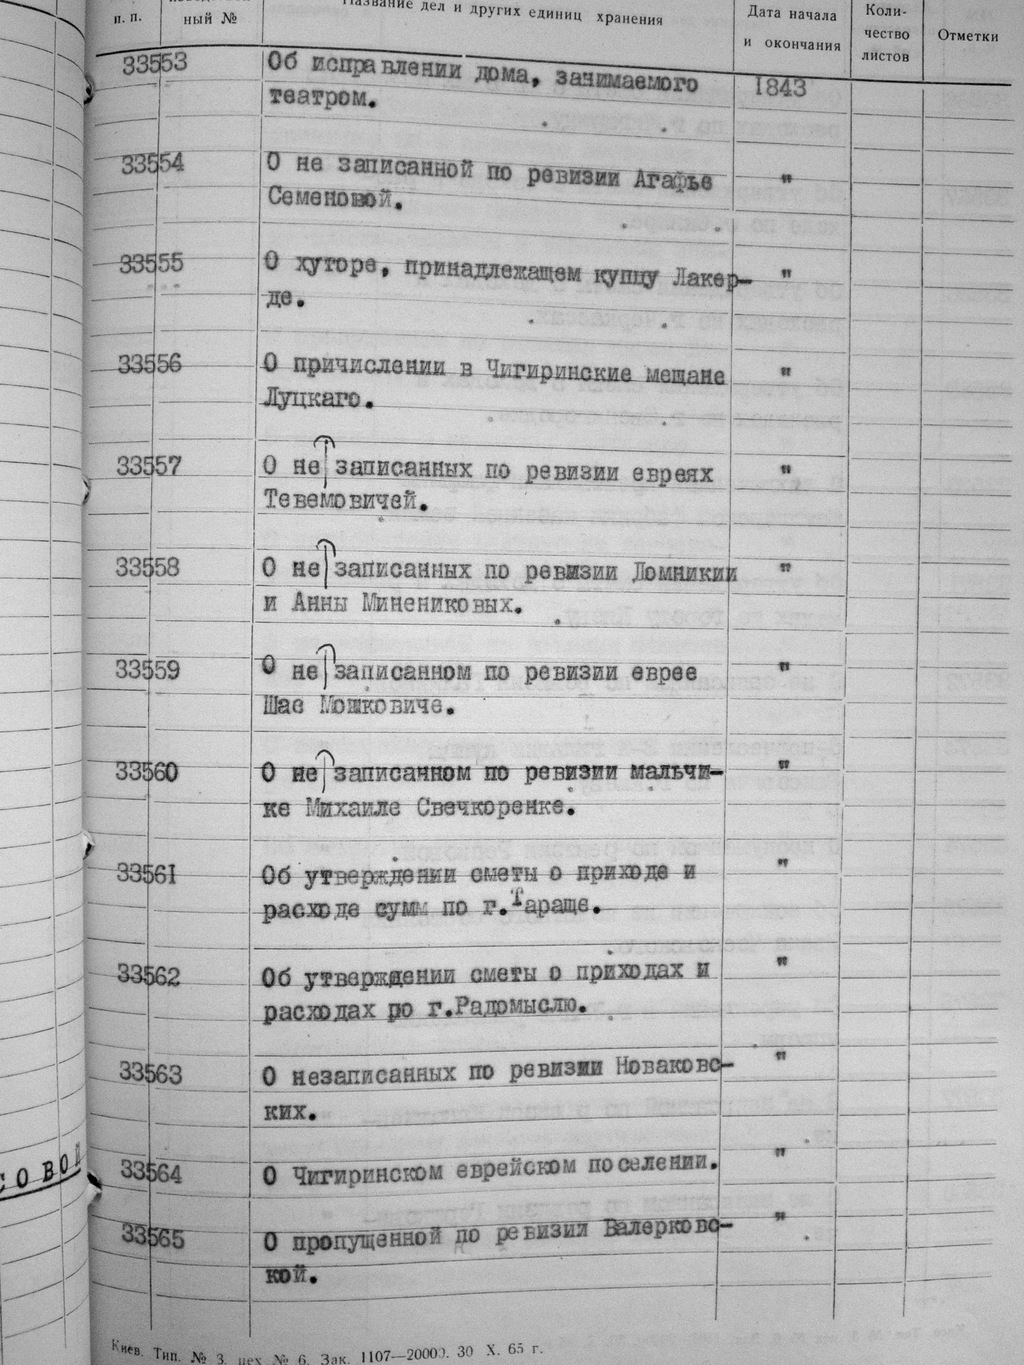 п. п.
ный №
Название дел и других единиц хранения
Дата начала
и окончания
Коли-
чество
листов
Отметки
33553 Об исправлении дома, занимаемого 1843
театром.
33554 О не записанной по ревизии Агафье "
Семеновой.
33555 О хуторе, принадлежащем купцу Лакер- "
де.
33556 О причислении в Чигиринские мещане "
Луцкаго.
33557 О не записанных по ревизии евреях "
Тевемовичей.
33558 О не записанных по ревизии Домникии "
и Анны Минениковых.
33559 О не записанном по ревизии еврее "
Шае Мошковиче.
33560 О не записанном по ревизии мальчи- "
ке Михаиле Свечкоренке.
33561 Об утверждении сметы о приходе и "
расходе сумм по г.Тараще.
33562 Об утверждении сметы о приходах и "
расходах по г.Радомыслю.
33563 О незаписанных по ревизии Новаковс- "
ких.
33564 О Чигиринском еврейском поселении. "
33565 О пропущенной по ревизии Валерковс- "
кой.
СОВОЙ
Киев. Тип. № 3, цех № 6. Зак. 1107—20000. 30 X. 65 г.